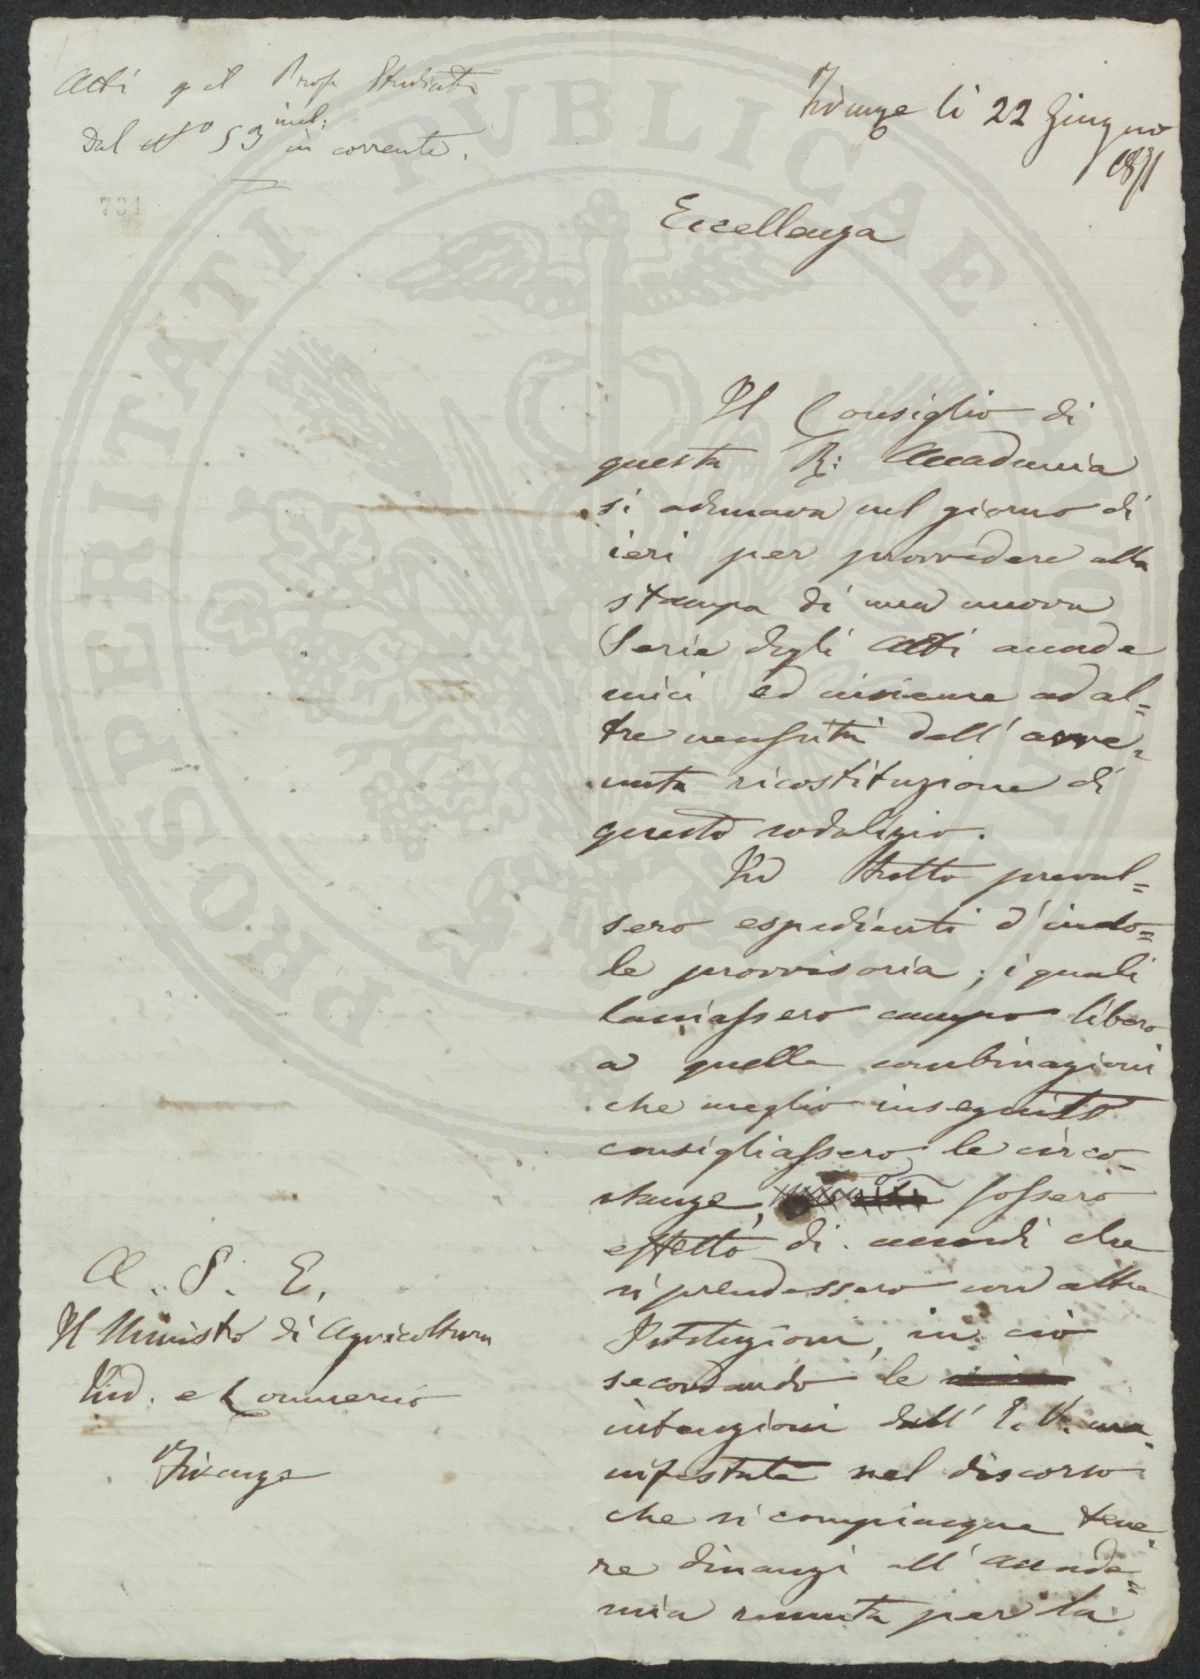 Atti pel Prof. Studiati
Dal N° 53 incl:
in corrente.
731
Firenze li 22 Giugno
1871
Eccellenza
Il Consiglio di
questa R: Accademia
si adunava nel giorno di
ieri per provvedere alla
stampa di una nuova
Serie degli Atti accade
mici ed insieme ad al=
tre necessità dell' avve=
nuta ricostituzione di
questo sodalizio.
In tutto preval=
sero espedienti d' indo=
le provvisoria, i quali
lasciassero campo libero
a quelle combinazioni
che meglio in seguito
consigliassero le circo-
stanze, o fossero
effetto di accordi che
si prendessero con altre
Istituzioni, in ciò
secondando le
intenzioni dell' E. V. ma-
nifestate nel discorso
che si compiacque tene-
re dinanzi all' Accade=
mia riunita per la
A. S. E.
Il Ministro di Agricoltura
Ind. e Commercio
Firenze
PROSPERITATI PUBLICAE AUGENDAE